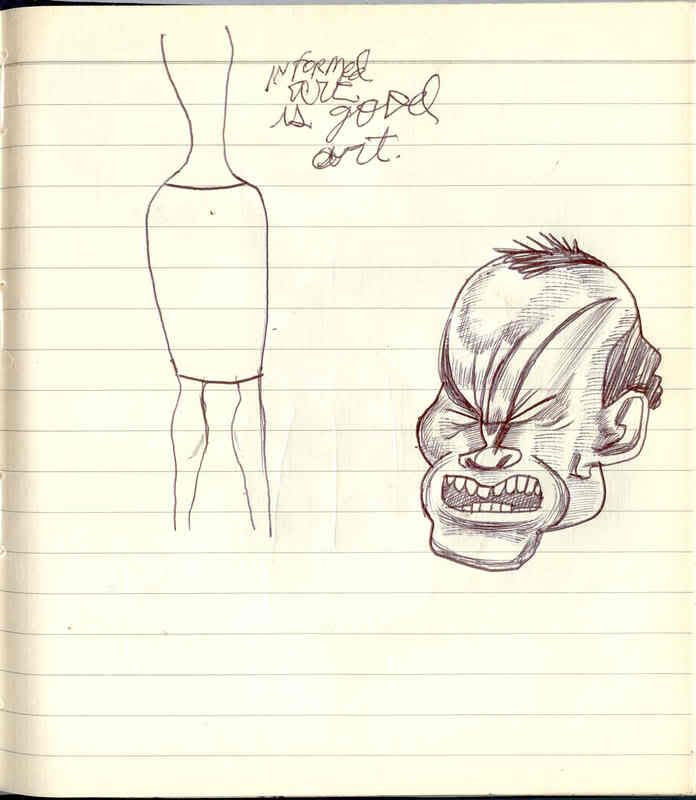 INFORMED
is good
art.